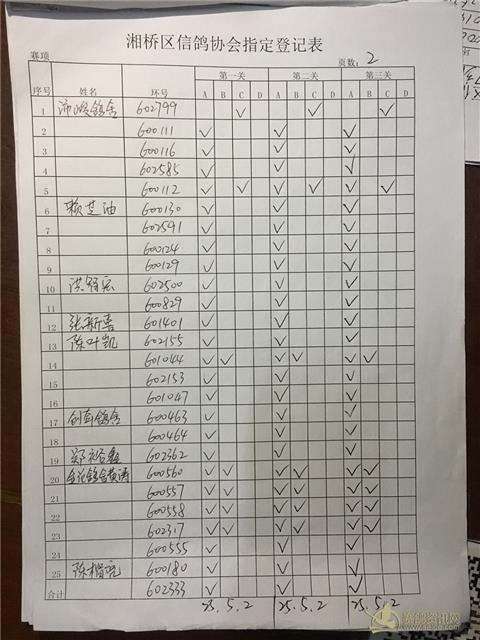 湘桥区信鸽协会指定登记表
赛项 页数： 2
序号 姓名 环号 第一关 第二关 第三关
A B C D A B C D A B C D
1 602799 ✓ ✓ ✓
2 600111 ✓ ✓ ✓
3 600116 ✓ ✓ ✓
4 602585 ✓ ✓ ✓
5 600112 ✓ ✓ ✓ ✓ ✓ ✓
6 赖芝油 600130 ✓ ✓ ✓
7 602591 ✓ ✓ ✓
8 600124 ✓ ✓ ✓
9 600129 ✓ ✓ ✓
10 602500 ✓ ✓ ✓
11 600829 ✓ ✓ ✓
12 张新喜 601401 ✓ ✓ ✓
13 陈叶凯 602155 ✓ ✓ ✓
14 601044 ✓ ✓ ✓ ✓ ✓ ✓
15 602153 ✓ ✓ ✓
16 601047 ✓ ✓ ✓
17 创新鸽舍 600463 ✓ ✓ ✓
18 600464 ✓ ✓ ✓
19 602362 ✓ ✓ ✓
20 600560 ✓ ✓ ✓ ✓ ✓ ✓
21 600557 ✓ ✓ ✓ ✓ ✓ ✓
22 600558 ✓ ✓ ✓ ✓ ✓ ✓
23 602317 ✓ ✓ ✓ ✓ ✓ ✓
24 600555 ✓ ✓ ✓
25 600180 ✓ ✓ ✓
合计 602333 ✓ ✓ ✓
25.5.2 25.5.2 25.5.2